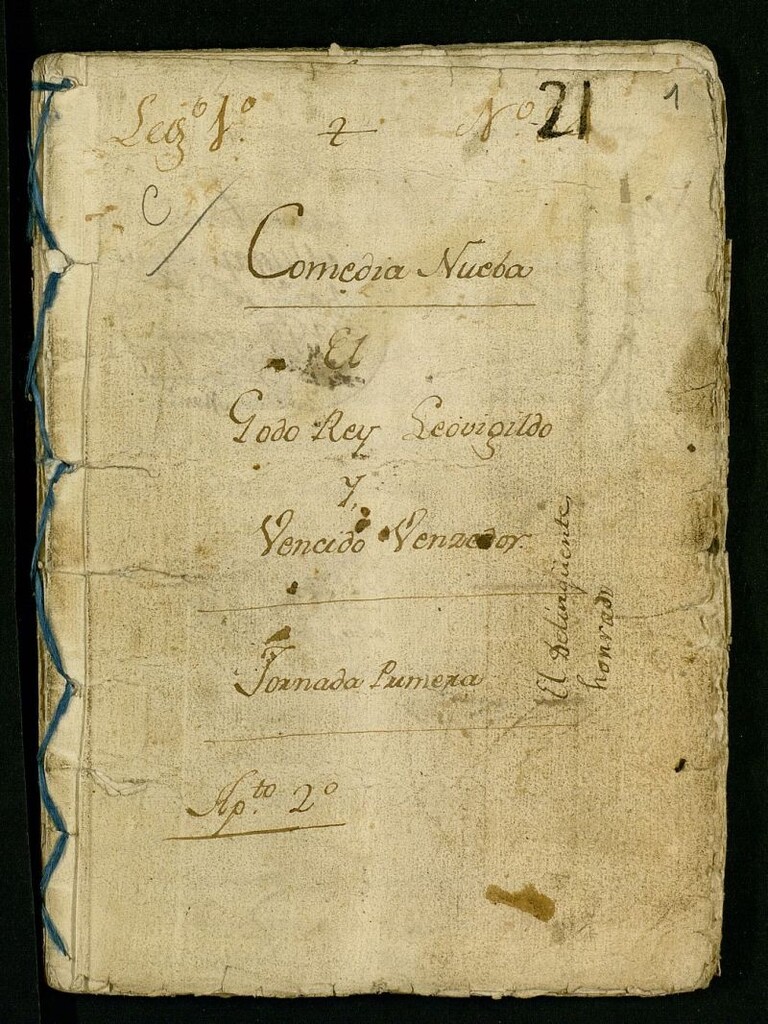 Leg.º 1.º 2 Nº 21 1
C
Comedia Nueba
El
Godo Rey Leovigildo
y,
Vencido Venzedor.
Jornada Primera
Ap.to 2º
El Delinqüente
honrado